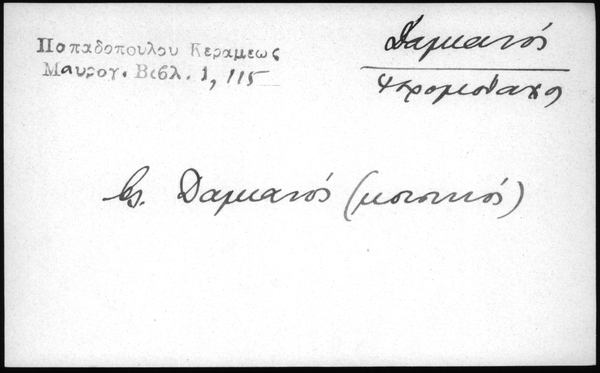 Παπαδοπουλου Κεραμεως
Μαυρογ. Βιβλ. 1, 115
Δαμιανός
Ιερομόναχο
βλ. Δαμιανός (μοναχός)